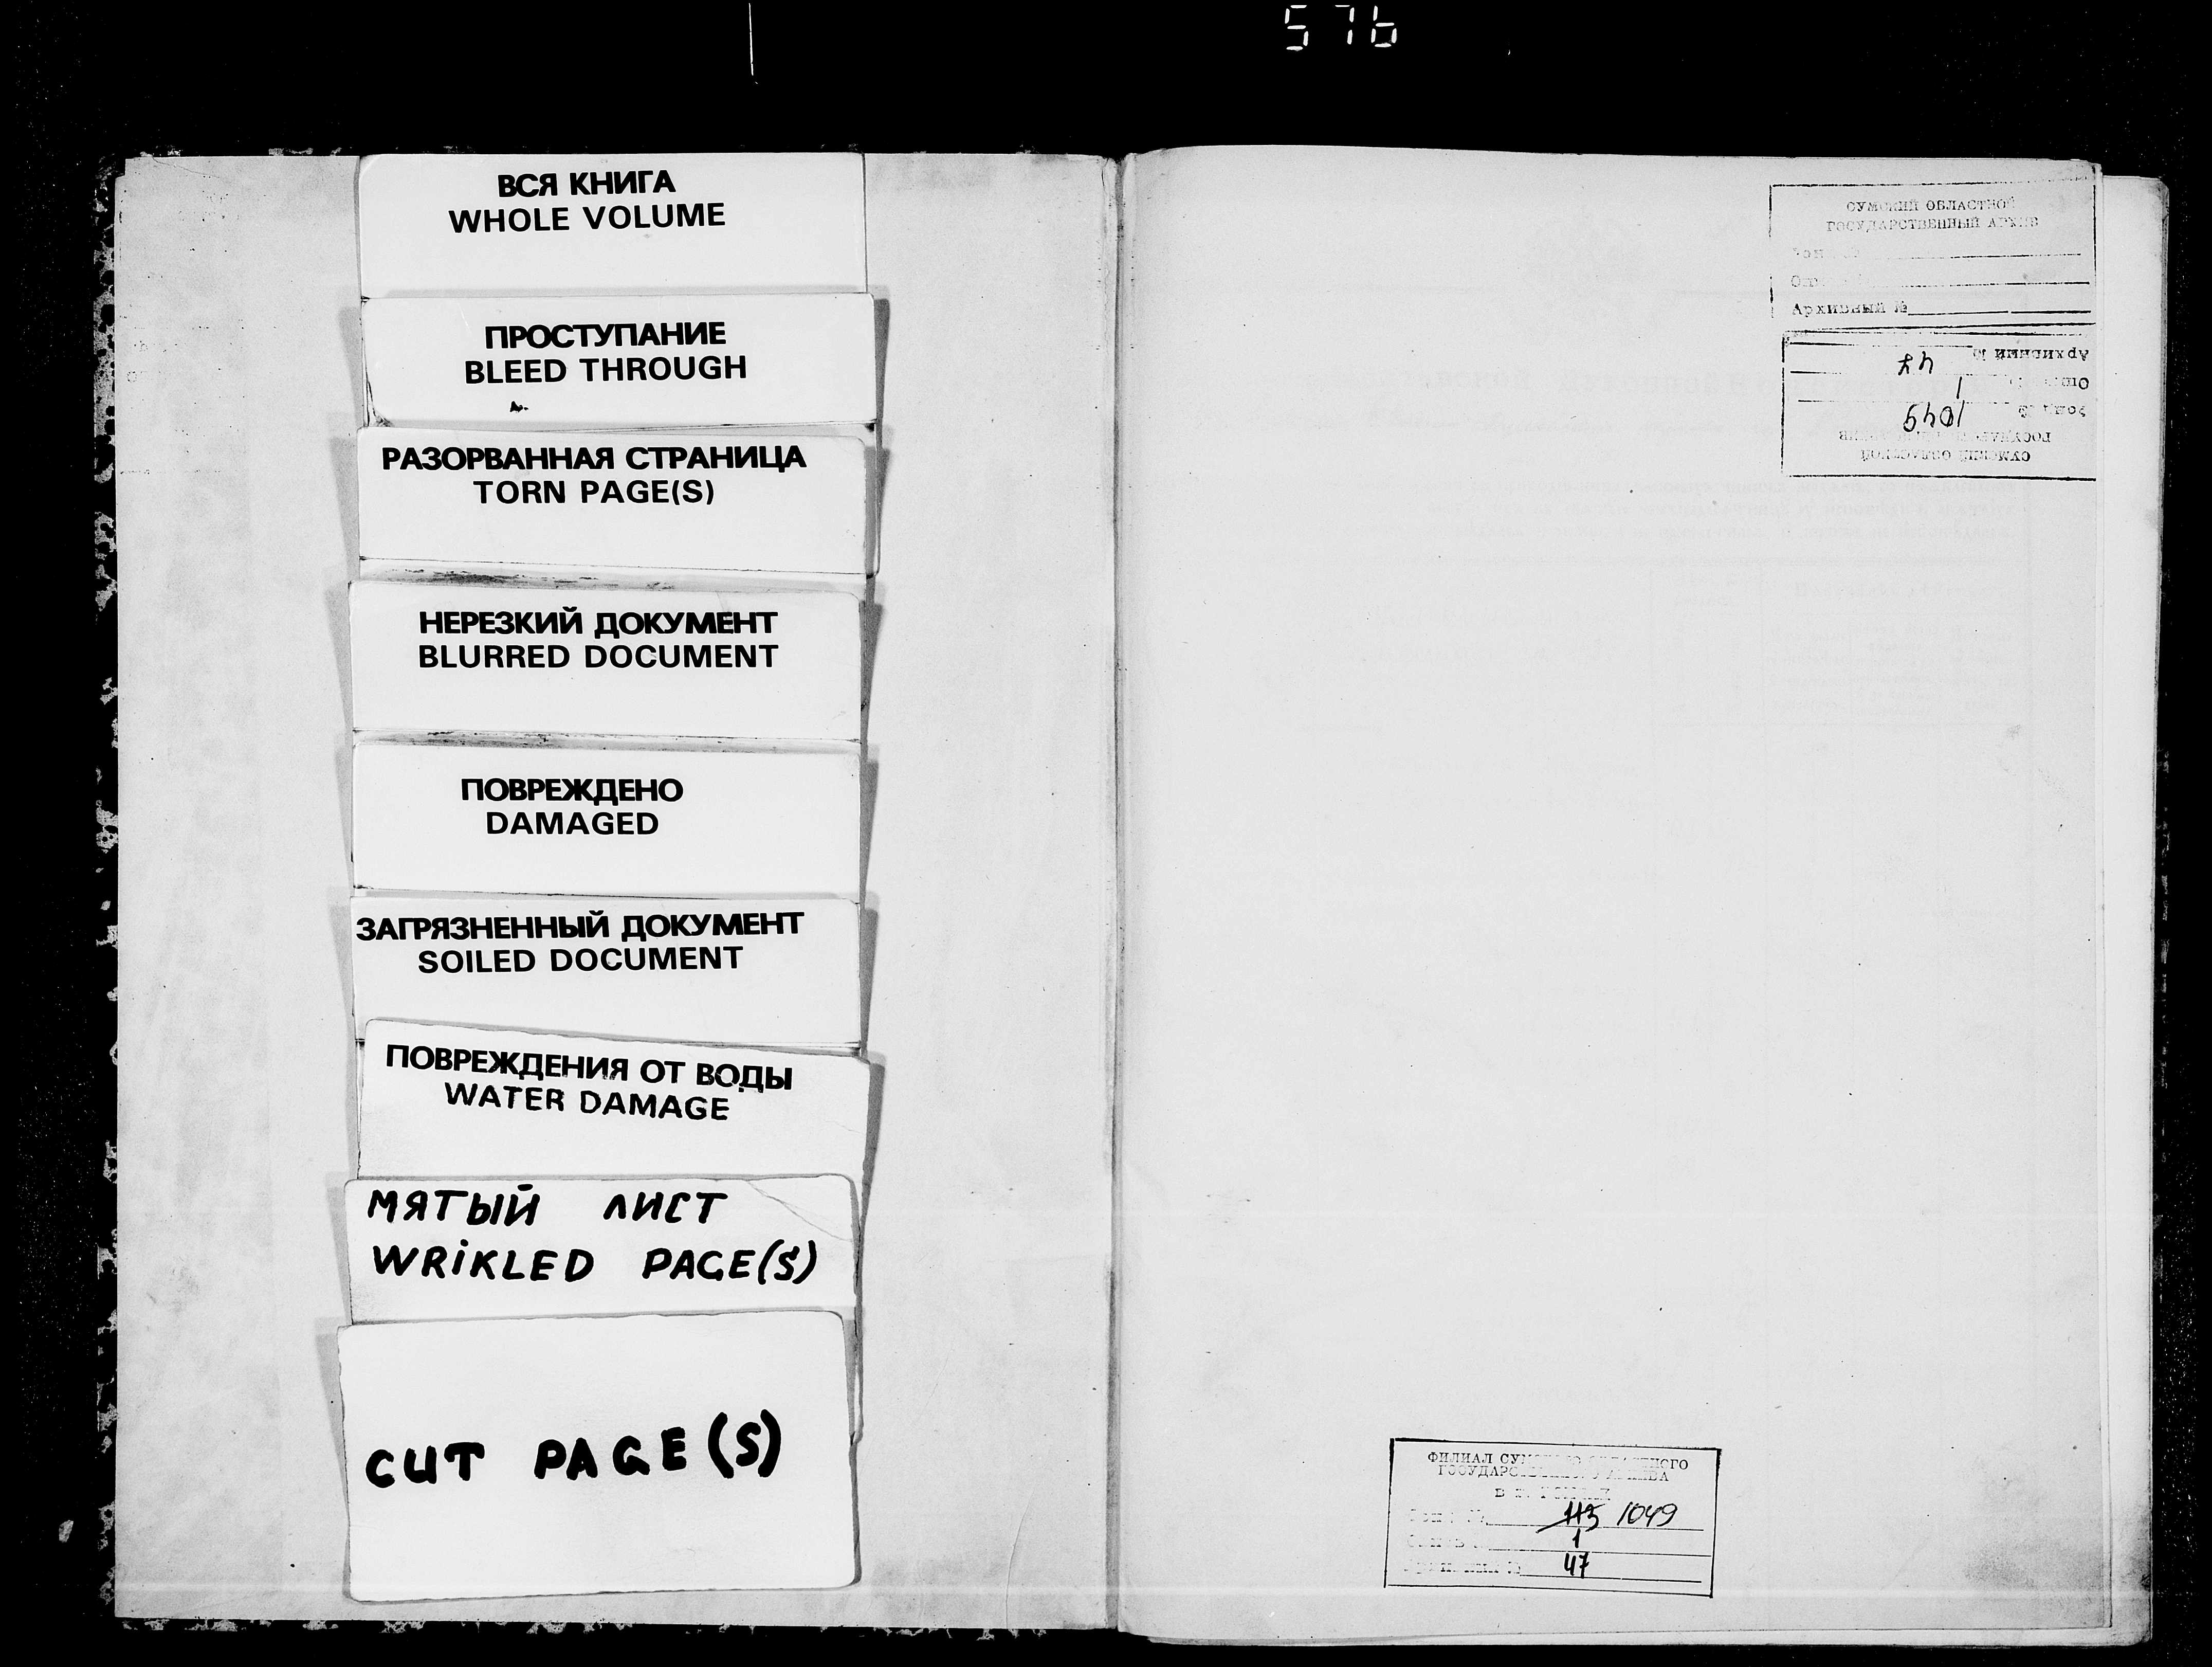 576
ВСЯ КНИГА
WHOLE VOLUME
ПРОСТУПАНИЕ
BLEED THROUGH
РАЗОРВАННАЯ СТРАНИЦА
TORN PAGE(S)
НЕРЕЗКИЙ ДОКУМЕНТ
BLURRED DOCUMENT
ПОВРЕЖДЕНО
DAMAGED
ЗАГРЯЗНЕННЫЙ ДОКУМЕНТ
SOILED DOCUMENT
ПОВРЕЖДЕНИЯ ОТ ВОДЫ
WATER DAMAGE
МЯТЫЙ ЛИСТ
WRIKLED PAGE(S)
CUT PAGE(S)
СУМСКИЙ ОБЛАСТНОЙ
ГОСУДАРСТВЕННЫЙ АРХИВ
Архивный №
СУМСКИЙ ОБЛАСТНОЙ
ГОСУДАРСТВЕННЫЙ АРХИВ
Фонд № 1049
Опись № 1
Архивный № 47
ФИЛИАЛ СУМСКОГО ОБЛАСТНОГО
ГОСУДАРСТВЕННОГО АРХИВА
113 1049
1
47